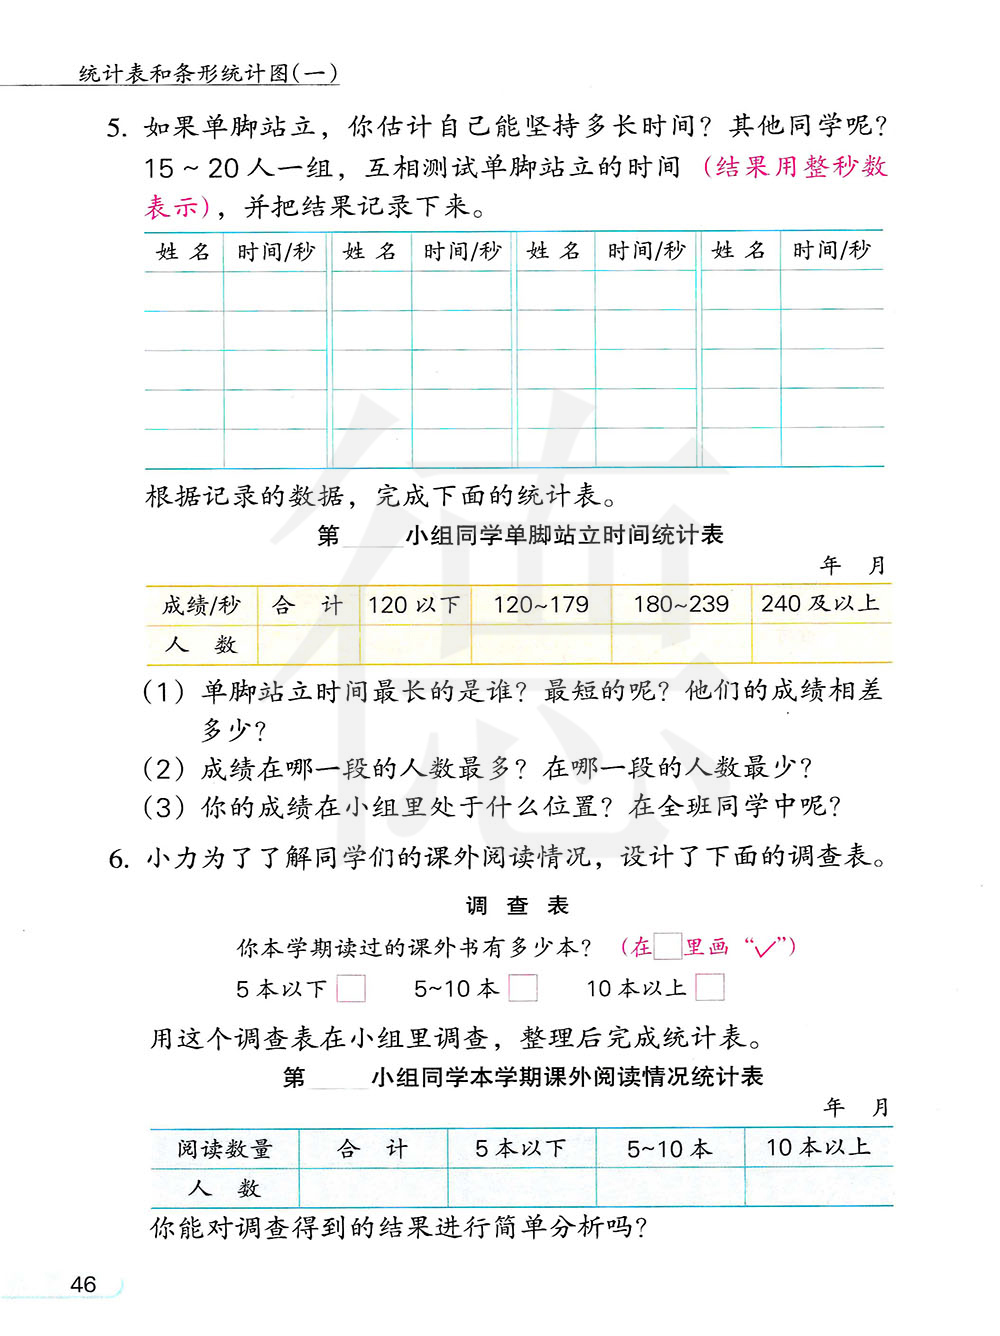 统计表和条形统计图(一)
5. 如果单脚站立，你估计自己能坚持多长时间？其他同学呢？
15～20人一组，互相测试单脚站立的时间（结果用整秒数
表示），并把结果记录下来。
姓 名 时间/秒 姓 名 时间/秒 姓 名 时间/秒 姓 名 时间/秒
根据记录的数据，完成下面的统计表。
第____小组同学单脚站立时间统计表
年 月
成绩/秒 合 计 120以下 120~179 180~239 240及以上
人 数
（1）单脚站立时间最长的是谁？最短的呢？他们的成绩相差
多少？
（2）成绩在哪一段的人数最多？在哪一段的人数最少？
（3）你的成绩在小组里处于什么位置？在全班同学中呢？
6. 小力为了了解同学们的课外阅读情况，设计了下面的调查表。
调 查 表
你本学期读过的课外书有多少本？（在□里画“✓”）
5本以下□ 5~10本□ 10本以上□
用这个调查表在小组里调查，整理后完成统计表。
第____小组同学本学期课外阅读情况统计表
年 月
阅读数量 合 计 5本以下 5~10本 10本以上
人 数
你能对调查得到的结果进行简单分析吗？
46
德